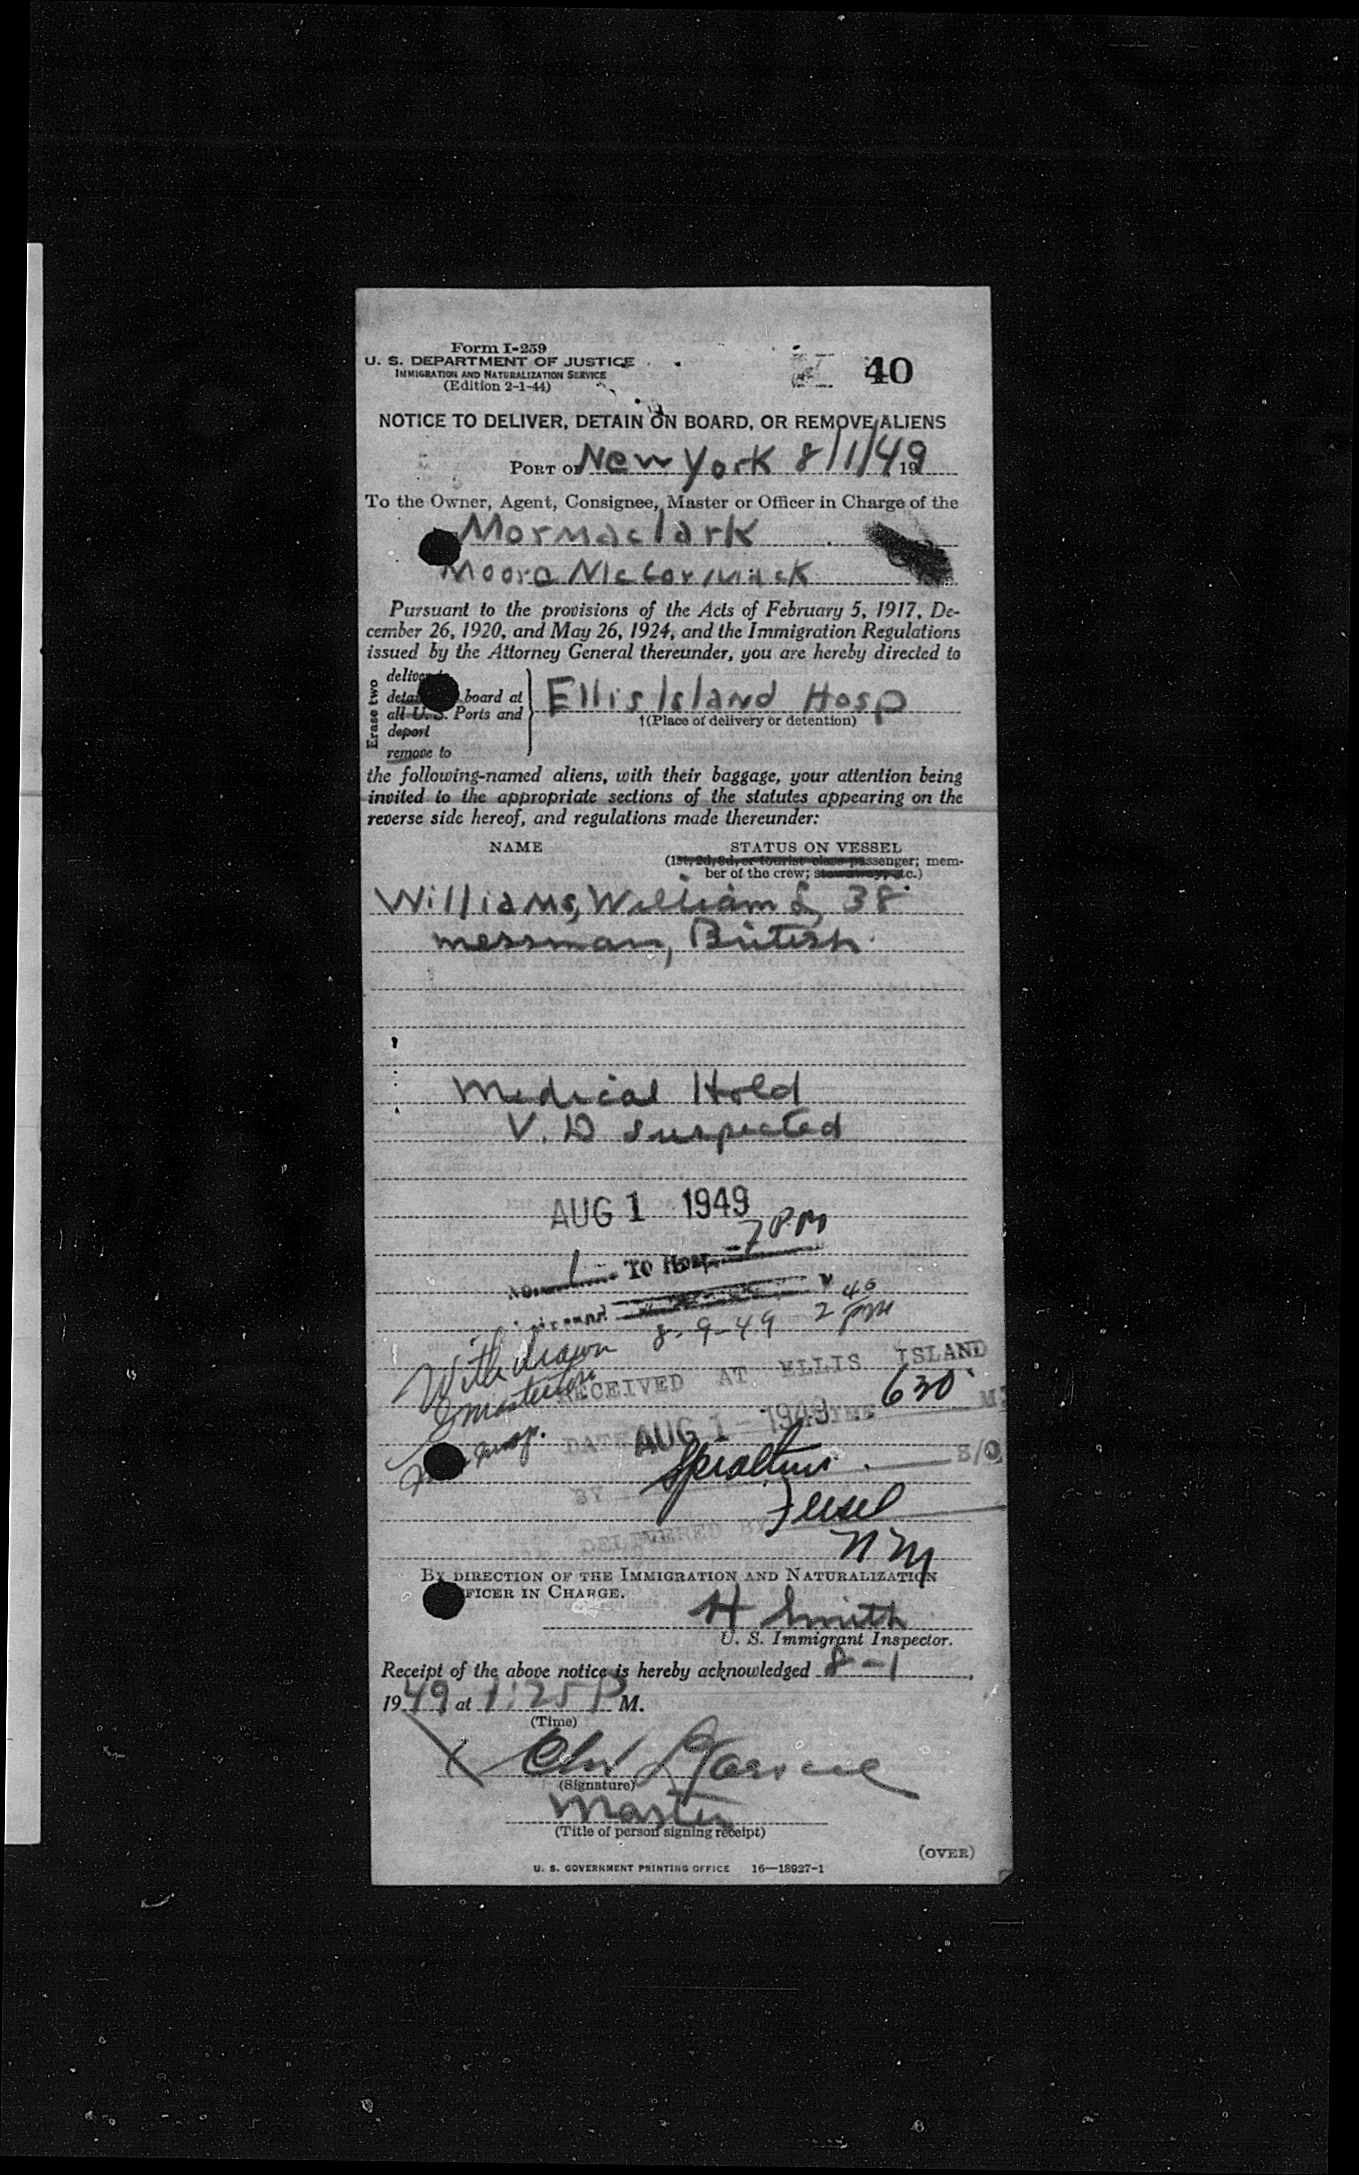 Form I-259
U. S. DEPARTMENT OF JUSTICE
IMMIGRATION AND NATURALIZATION SERVICE
(Edition 2-1-44)
40
NOTICE TO DELIVER, DETAIN ON BOARD, OR REMOVE ALIENS
PORT OF New York 8/1/49 19
To the Owner, Agent, Consignee, Master or Officer in Charge of the
Mormaclark
Moore McCormack
Pursuant to the provisions of the Acts of February 5, 1917, De-
cember 26, 1920, and May 26, 1924, and the Immigration Regulations
issued by the Attorney General thereunder, you are hereby directed to
Erase two
deliver
board at
all U.S. Ports and
deport
remove to
Ellis Island Hosp
†(Place of delivery or detention)
the following-named aliens, with their baggage, your attention being
invited to the appropriate sections of the statutes appearing on the
reverse side hereof, and regulations made thereunder:
NAME STATUS ON VESSEL
(1st, 2d, 3d, or tourist class passenger; mem-
ber of the crew; stowaway, etc.)
Williams, William L, 38
messman, British
Medical Hold
V. D suspected
AUG 1 1949
No. 1 To Hosp. 7 PM
8-9-49 2 40 PM
Withdrawn
RECEIVED AT ELLIS ISLAND
DATE AUG 1 - 1949 TIME 630 M
S/O
BY
DELIVERED BY
BY DIRECTION OF THE IMMIGRATION AND NATURALIZATION
OFFICER IN CHARGE.
H Smith
U. S. Immigrant Inspector.
Receipt of the above notice is hereby acknowledged 8-1,
1949 at 1:25 P M.
(Time)
X
(Signature)
Master
(Title of person signing receipt)
(OVER)
U. S. GOVERNMENT PRINTING OFFICE 16—18927-1